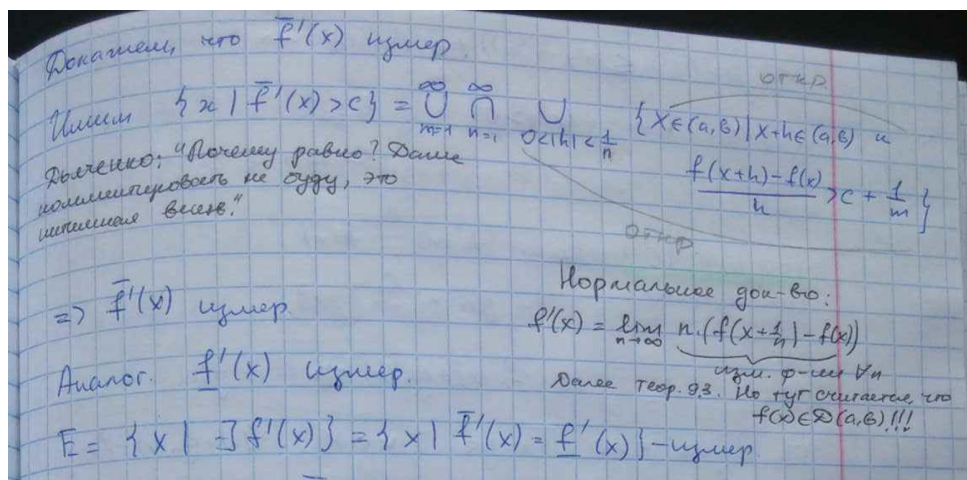 Докажем, что f̅'(x) измер.
Имеем {x | f̅'(x) > c} = ∞∪m=1 ∞∩n=1 ∪0<|h|<1/n {x∈(a,b) | x+h∈(a,b) и
(f(x+h)-f(x))/h > c + 1/m}
откр
откр
Дьяченко: "Почему равно? Даже
комментировать не буду, это
интимная вещь."
=> f̅'(x) измер.
Аналог. f̲'(x) измер.
E = {x | ∃ f'(x)} = {x | f̅'(x) = f̲'(x)} - измер
Нормальное док-во:
f'(x) = lim n→∞ n·(f(x+1/n)-f(x))
изм. ф-ии ∀n
Далее теор. 9.3. Но тут считается, что
f(x)∈D(a,b)!!!